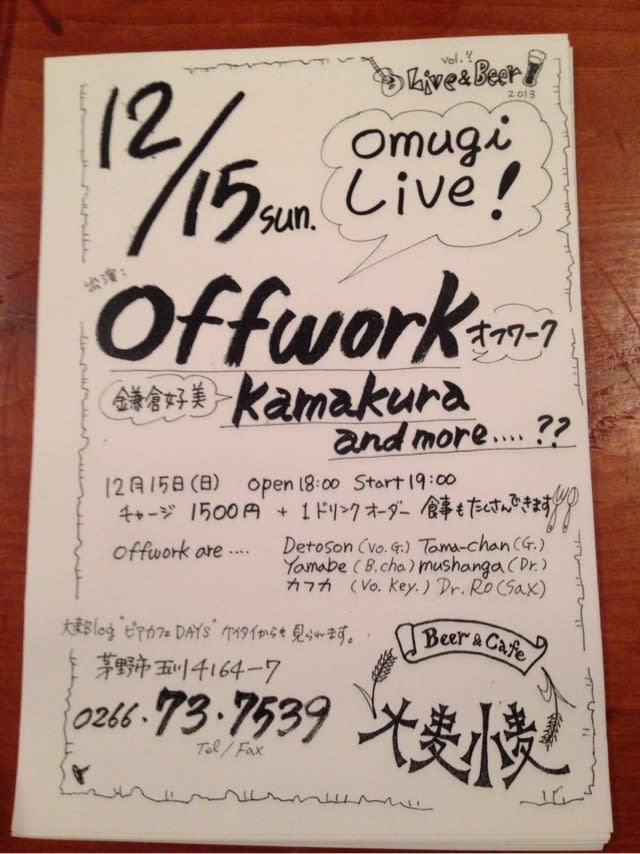 vol.?
Live & Beer
2013
12/15 sun.
omugi
Live!
出演:
Offwork オフワーク
鎌倉好美 kamakura
and more....??
12月15日(日) open 18:00 Start 19:00
チャージ 1500円 + 1ドリンクオーダー 食事もたくさんできます
Offwork are .... Detoson (Vo. G.) Tama-chan (G.)
Yamabe (B. cho) mushanga (Dr.)
カフカ (Vo. Key.) Dr. Ro (Sax)
大麦Blog "ビアカフェDAYS" ケイタイからも見られます。
茅野市玉川4164-7
0266・73・7539
Tel/Fax
Beer & Cafe
大麦小麦